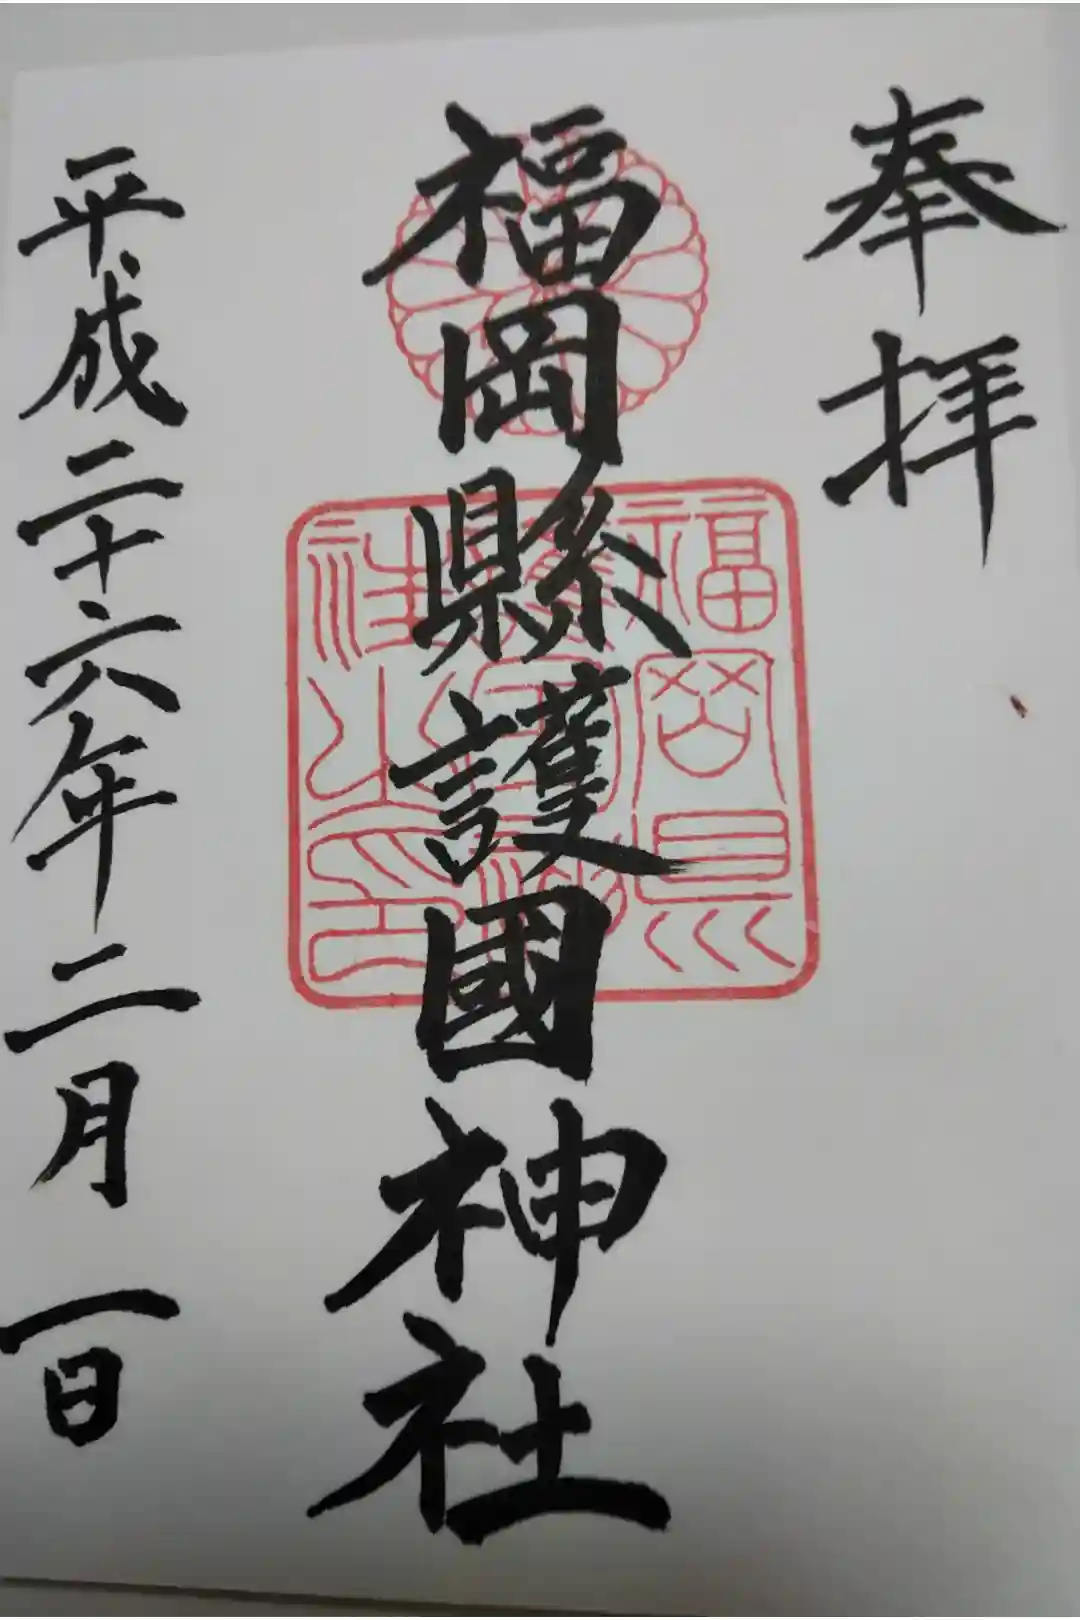 奉拝
福岡縣護國神社
福岡縣護國神社之印
平成二十六年二月一日